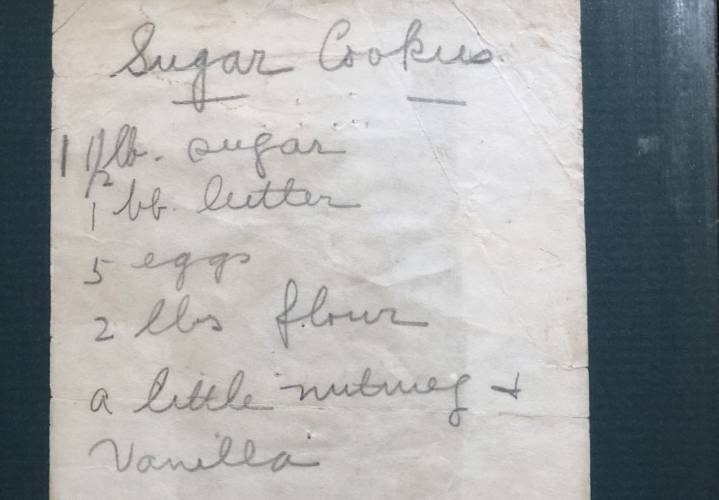 Sugar Cookies
1 1/2 lb. sugar
1 lb. butter
5 eggs
2 lbs flour
a little nutmeg +
Vanilla